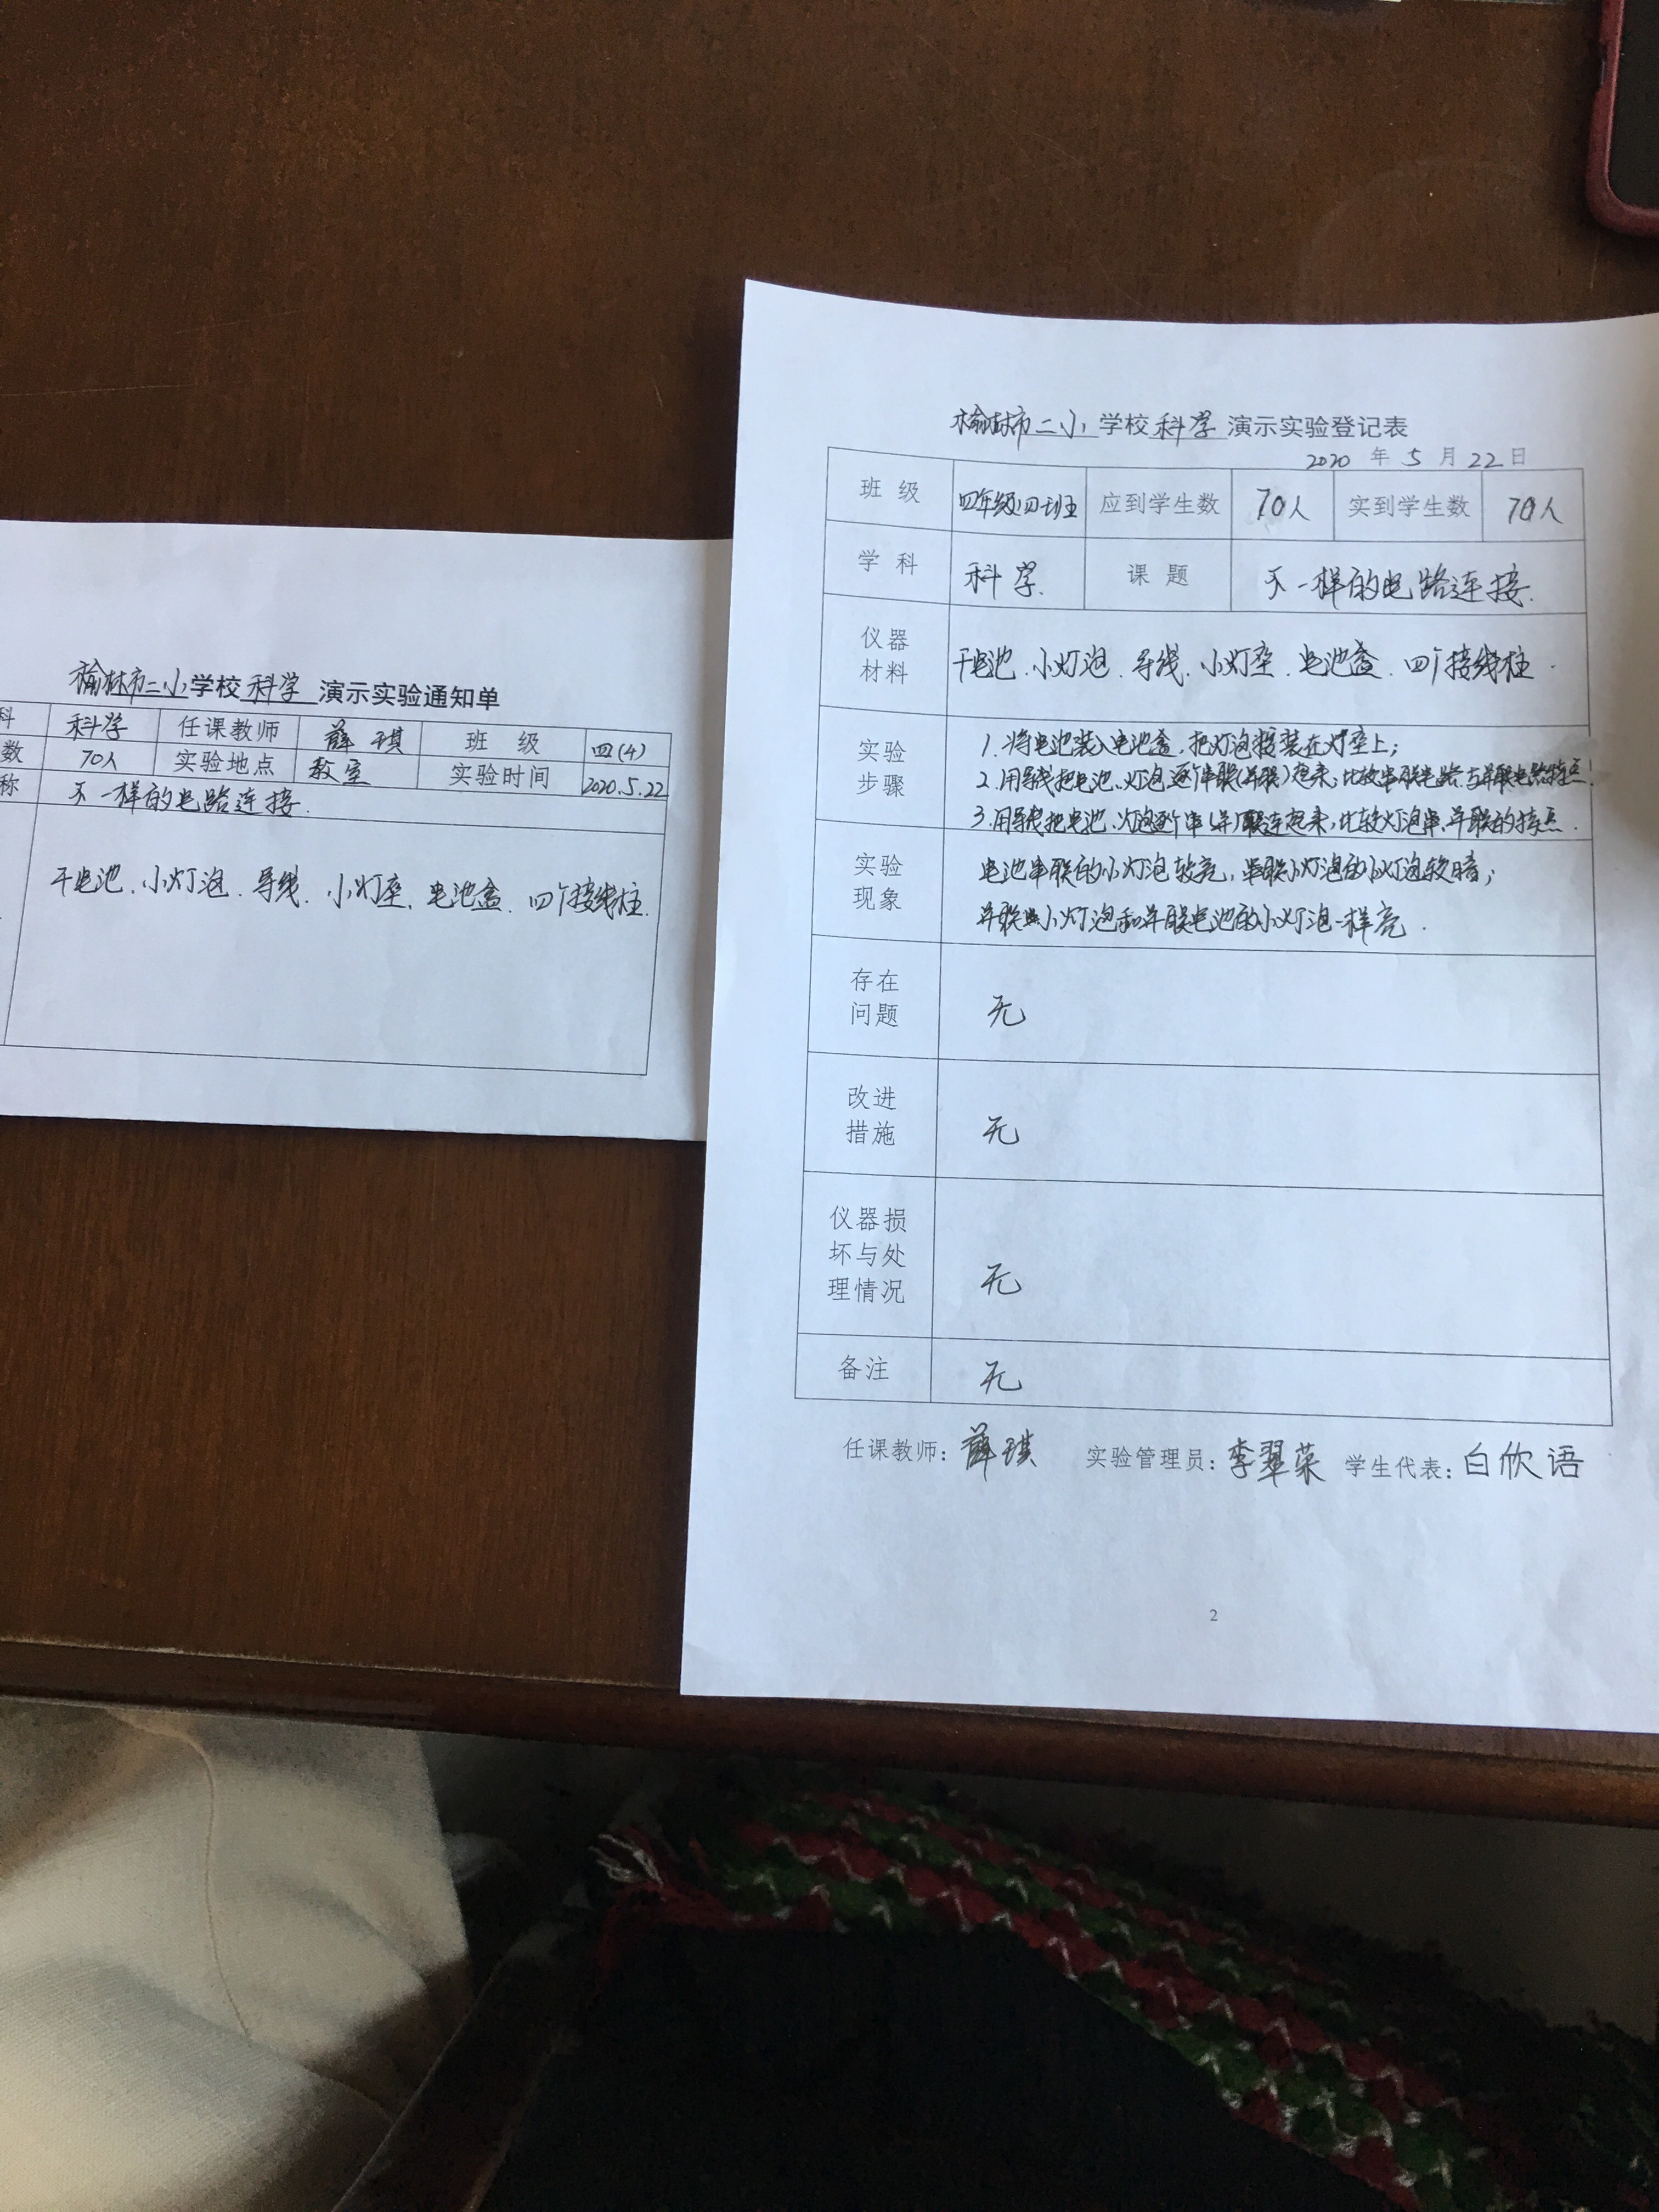 榆林市二小学校科学 演示实验通知单
科 科学 任课教师 薛琪 班 级 四(4)
数 70人 实验地点 教室 实验时间 2020.5.22
称 不一样的电路连接.
干电池、小灯泡、导线、小灯座、电池盒、四个接线柱.
榆林市二小学校科学 演示实验登记表
2020 年 5 月 22 日
班 级 四年级四班 应到学生数 70人 实到学生数 70人
学 科 科学. 课 题 不一样的电路连接.
仪器
材料
干电池、小灯泡、导线、小灯座、电池盒、四个接线柱.
实验
步骤
1.将电池装入电池盒,把灯泡安装在灯座上;
2.用导线把电池、灯泡逐个串联(并联)起来,比较串联电路与并联电路特点;
3.用导线把电池、灯泡逐个串(并)联连起来,比较灯泡串、并联的特点.
实验
现象
电池串联的小灯泡较亮,串联小灯泡的小灯泡较暗;
并联小灯泡和并联电池的小灯泡一样亮.
存在
问题
无
改进
措施
无
仪器损
坏与处
理情况
无
备注 无
任课教师:薛琪 实验管理员:李翠荣 学生代表:白欣语
2